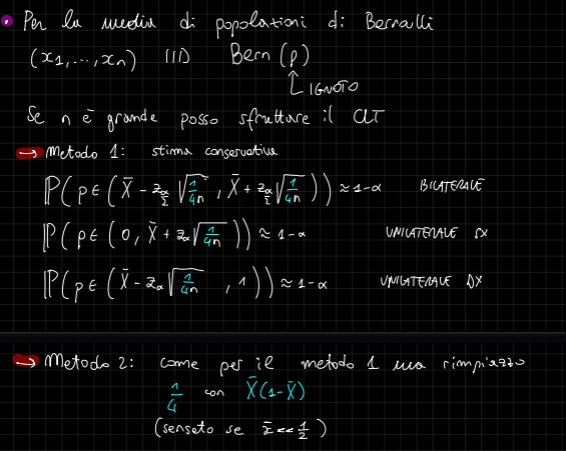 Per la media di popolazioni di Bernulli
(x1,...,xn) IID Bern(p)
↑ IGNOTO
Se n è grande posso sfruttare il CLT
→ Metodo 1: stima conservativa
ℙ(p ∈ (X̄ - z_{α/2} √(1/4n), X̄ + z_{α/2} √(1/4n))) ≈ 1-α BILATERALE
ℙ(p ∈ (0, X̄ + z_α √(1/4n))) ≈ 1-α UNILATERALE SX
ℙ(p ∈ (X̄ - z_α √(1/4n), 1)) ≈ 1-α UNILATERALE DX
→ Metodo 2: come per il metodo 1 ma rimpiazzo
1/4 con X̄(1-X̄)
(sensato se x̄ << 1/2)